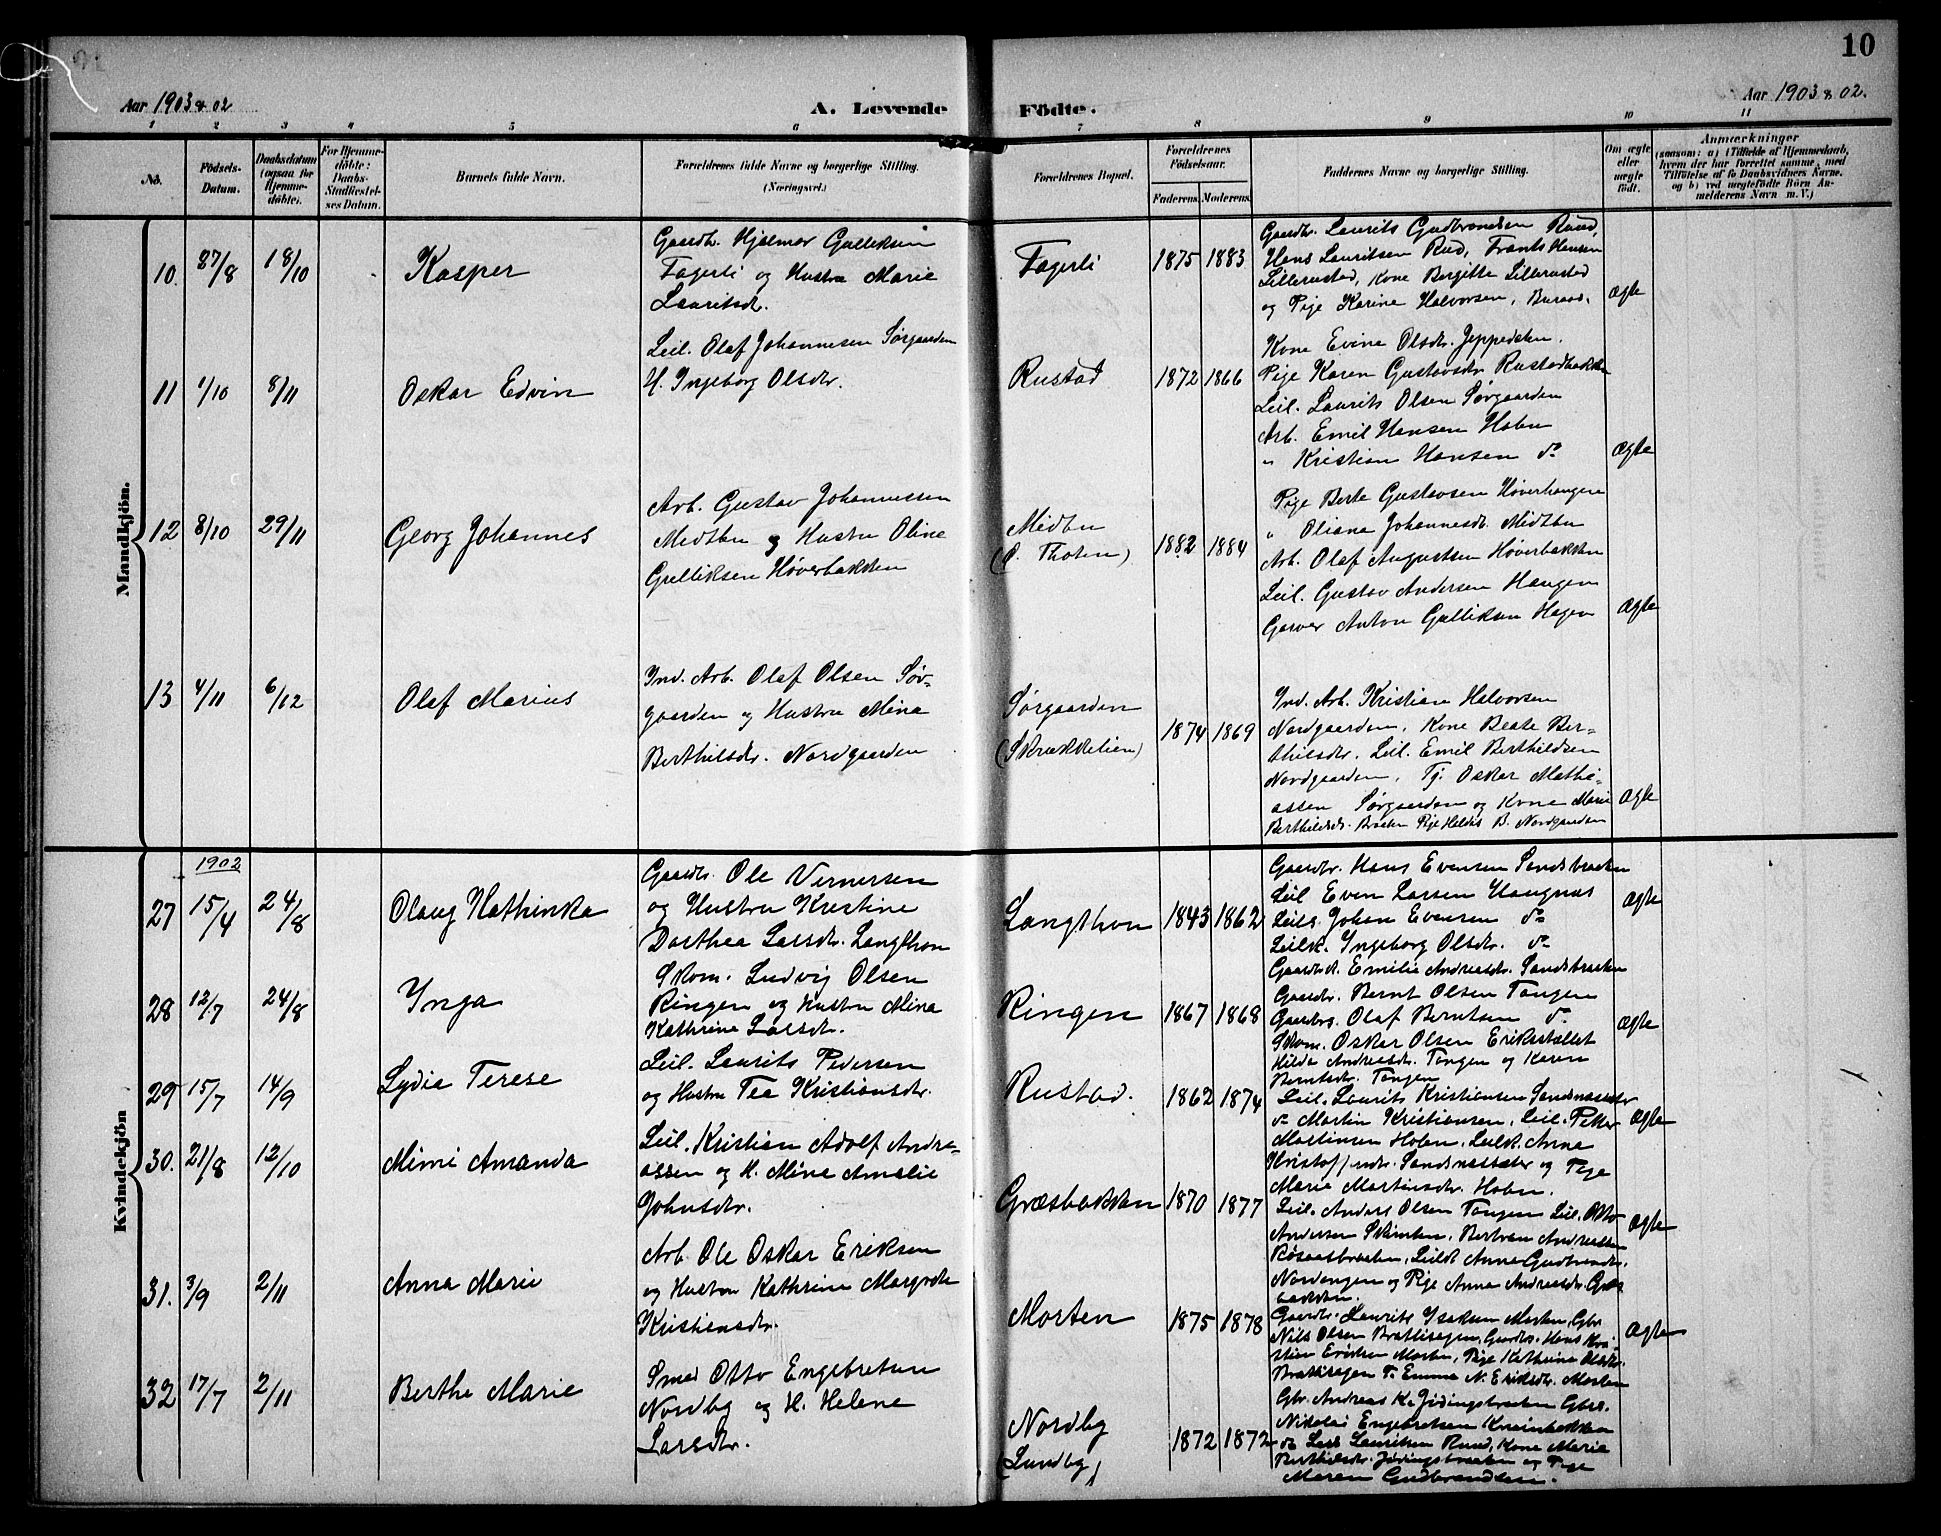 10
Aar 1903 & 02
A. Levende Födte.
Aar 1903 & 02.
1 2 3 4 5 6 7 8 9 10 11
No.
Födsels-Datum.
Daabsdatum (ogsaa for Hjemmedöbte).
For Hjemmedöbte: Daabs-Stadfæstelses Datum.
Barnets fulde Navn.
Forældrenes fulde Navne og borgerlige Stilling.
(Næringsvei.)
Forældrenes Bopæl.
Forældrenes Födselsaar.
Faderens. Moderens.
Faddernes Navne og borgerlige Stilling.
Om ægte eller uægte födt.
Anmærkninger
(saasom: a) (Tilfælde af Hjemmedaab,
hvem der har forrettet samme, med
Tilföielse af to Daabsvidners Navne,
og b) ved uægtefödte Börn Anmelderens Navn m. V.)
Mandkjön.
10. 27/8 18/10 Kasper
Gaardb. Hjalmar Gulliksen
Fagerli og Hustru Marie
Lauritsdr.
Fagerli 1875 1883
Gaardbr. Laurits Gudbrandsen Ruud,
Hans Lauritsen Rud, Frants Hansen
Lillerustad, Kone Bergitte Lillerustad
og Pige Karine Halvorsen, Buraas.
Ægte
11 1/10 8/11 Oskar Edvin
Leil. Olaf Johannesen Sørgaarden
H. Ingeborg Olsdr.
Rustad 1872 1866
Kone Evine Olsdr. Jeppedalen.
Pige Karen Gustavsdr. Rustadbakken
Leil. Laurits Olsen Sørgaarden
Arb. Emil Hansen Holen
" Kristian Hansen do
Ægte
12 8/10 29/11 Georg Johannes
Arb. Gustav Johannessen
Midtbn og Hustru Oline
Gulliksen Høverbakken
Midtbn
(Ø. Thoten) 1882 1884
Pige Berte Gustavsen Høverhaugen
" Oliana Johannesdr. Midtbn
Arb. Olaf Augustsen Høverbakken
Leil. Gustav Andersen Haugen
Garver Anton Gulliksen Hagen
Ægte
13 4/11 6/12 Olaf Marius
Ind. Arb. Olaf Olsen Sør-
gaarden og Hustru Mina
Berthilsdr. Nordgaarden
Sørgaarden
(Skrækkelien) 1874 1869
Ind. Arb. Kristian Halvorsen
Nordgaarden, Kone Beate Ber-
thilsdr. Leil. Emil Berthildsen
Nordgaarden, Tj. Oskar Mathi-
assen Sørgaarden og Kone Marie
Berthildsdr. Braaten Pige Hilda B. Nordgaarden
Ægte
Kvindekjön
1902
27 15/4 24/8 Olaug Kathinka
Gaardbr. Ole Vernersen
og Hustru Kristine
Dorthea Larsdr. Langthon
Langthon 1843 1862
Gaardbr. Hans Evensen Sandsbraaten
Leil Even Larsen Haugnæs
Leils. Johan Evensen do
Leilk. Ingeborg Olsdr. do
Gaardbk. Emilie Andreasdr. Sandsbraaten
Ægte
28 12/7 24/8 Inga
Skom. Ludvig Olsen
Ringen og Hustru Mina
Kathrine Larsdr.
Ringen 1867 1868
Gaardbr. Bernt Olsen Tangen
Gaardbrs. Olaf Berntsen do
Skom. Oskar Olsen Eriksstallet
Hilda Andreasdr. Tangen og Karen
Berntsdr. Tangen
Ægte
29 15/7 14/9 Lydia Terese
Leil. Laurits Pedersen
og Hustru Tea Kristiansdr.
Rustad. 1862 1874
Leil. Laurits Kristiansen Sandsnæssæter
do Martin Kristiansen, Leil. Petter
Martinsen Holen, Leilk. Anne
Kristoffersdr. Sandsnæssæter og Pige
Marie Martinsdr. Holen.
Ægte
30. 21/8 12/10 Mimi Amanda
Leil. Kristian Adolf Andre-
assen og H. Mina Amalie
Johnsdr.
Græsbakken 1870 1877
Leil. Anders Olsen Tangen Leil. Otto
Andersen Skinken, Bertran Andreassen
Røsaasbraaten, Leilk Anna Gudbrandsdr.
Nordengen og Pige Anna Andreasdr. Græs-
bakken.
Ægte
31. 3/9 2/11 Anna Marie
Arb. Ole Oskar Eriksen
og Hustru Kathrine Margrete
Kristiansdr.
Morten 1875 1878
Gaardbr. Laurits Isaksen Morten, Gbr
Nils Olsen Brattisagen, Gaardbr. Hans Kri-
stian Eriksen Morten, Pige Kathrine Olsdr.
Brattisagen P. Emma N. Eriksdr. Morten
Ægte
32 17/7 2/11 Berthe Marie
Smed Otto Engebretsen
Nordby og H. Helene
Larsdr.
Nordby
(Lundby) 1872 1872
Gbr. Andreas K. Jødingsbraaten Gbrs.
Nikolai Engebretsen Kneinbakken
do Lars Lauritsen Ruud, Kone Marie
Berthilsdr. Jødingsbraaten og Pige
Maren Gudbrandsen.